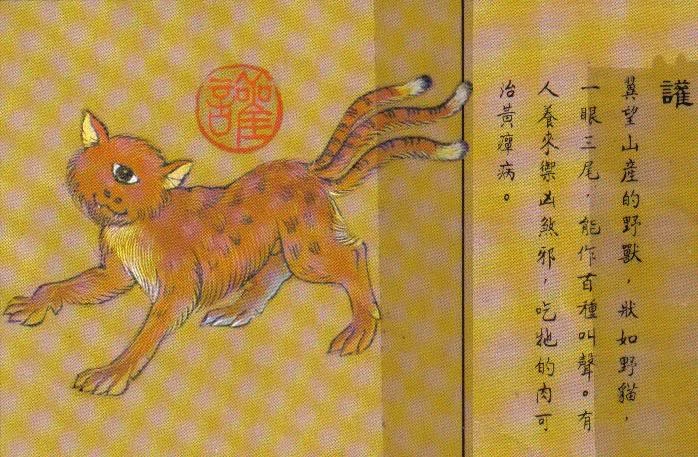 讙
翼望山産的野獸，狀如野貓，
一眼三尾，能作百種叫聲。有
人養來禦凶煞邪，吃牠的肉可
治黃癉病。
讙